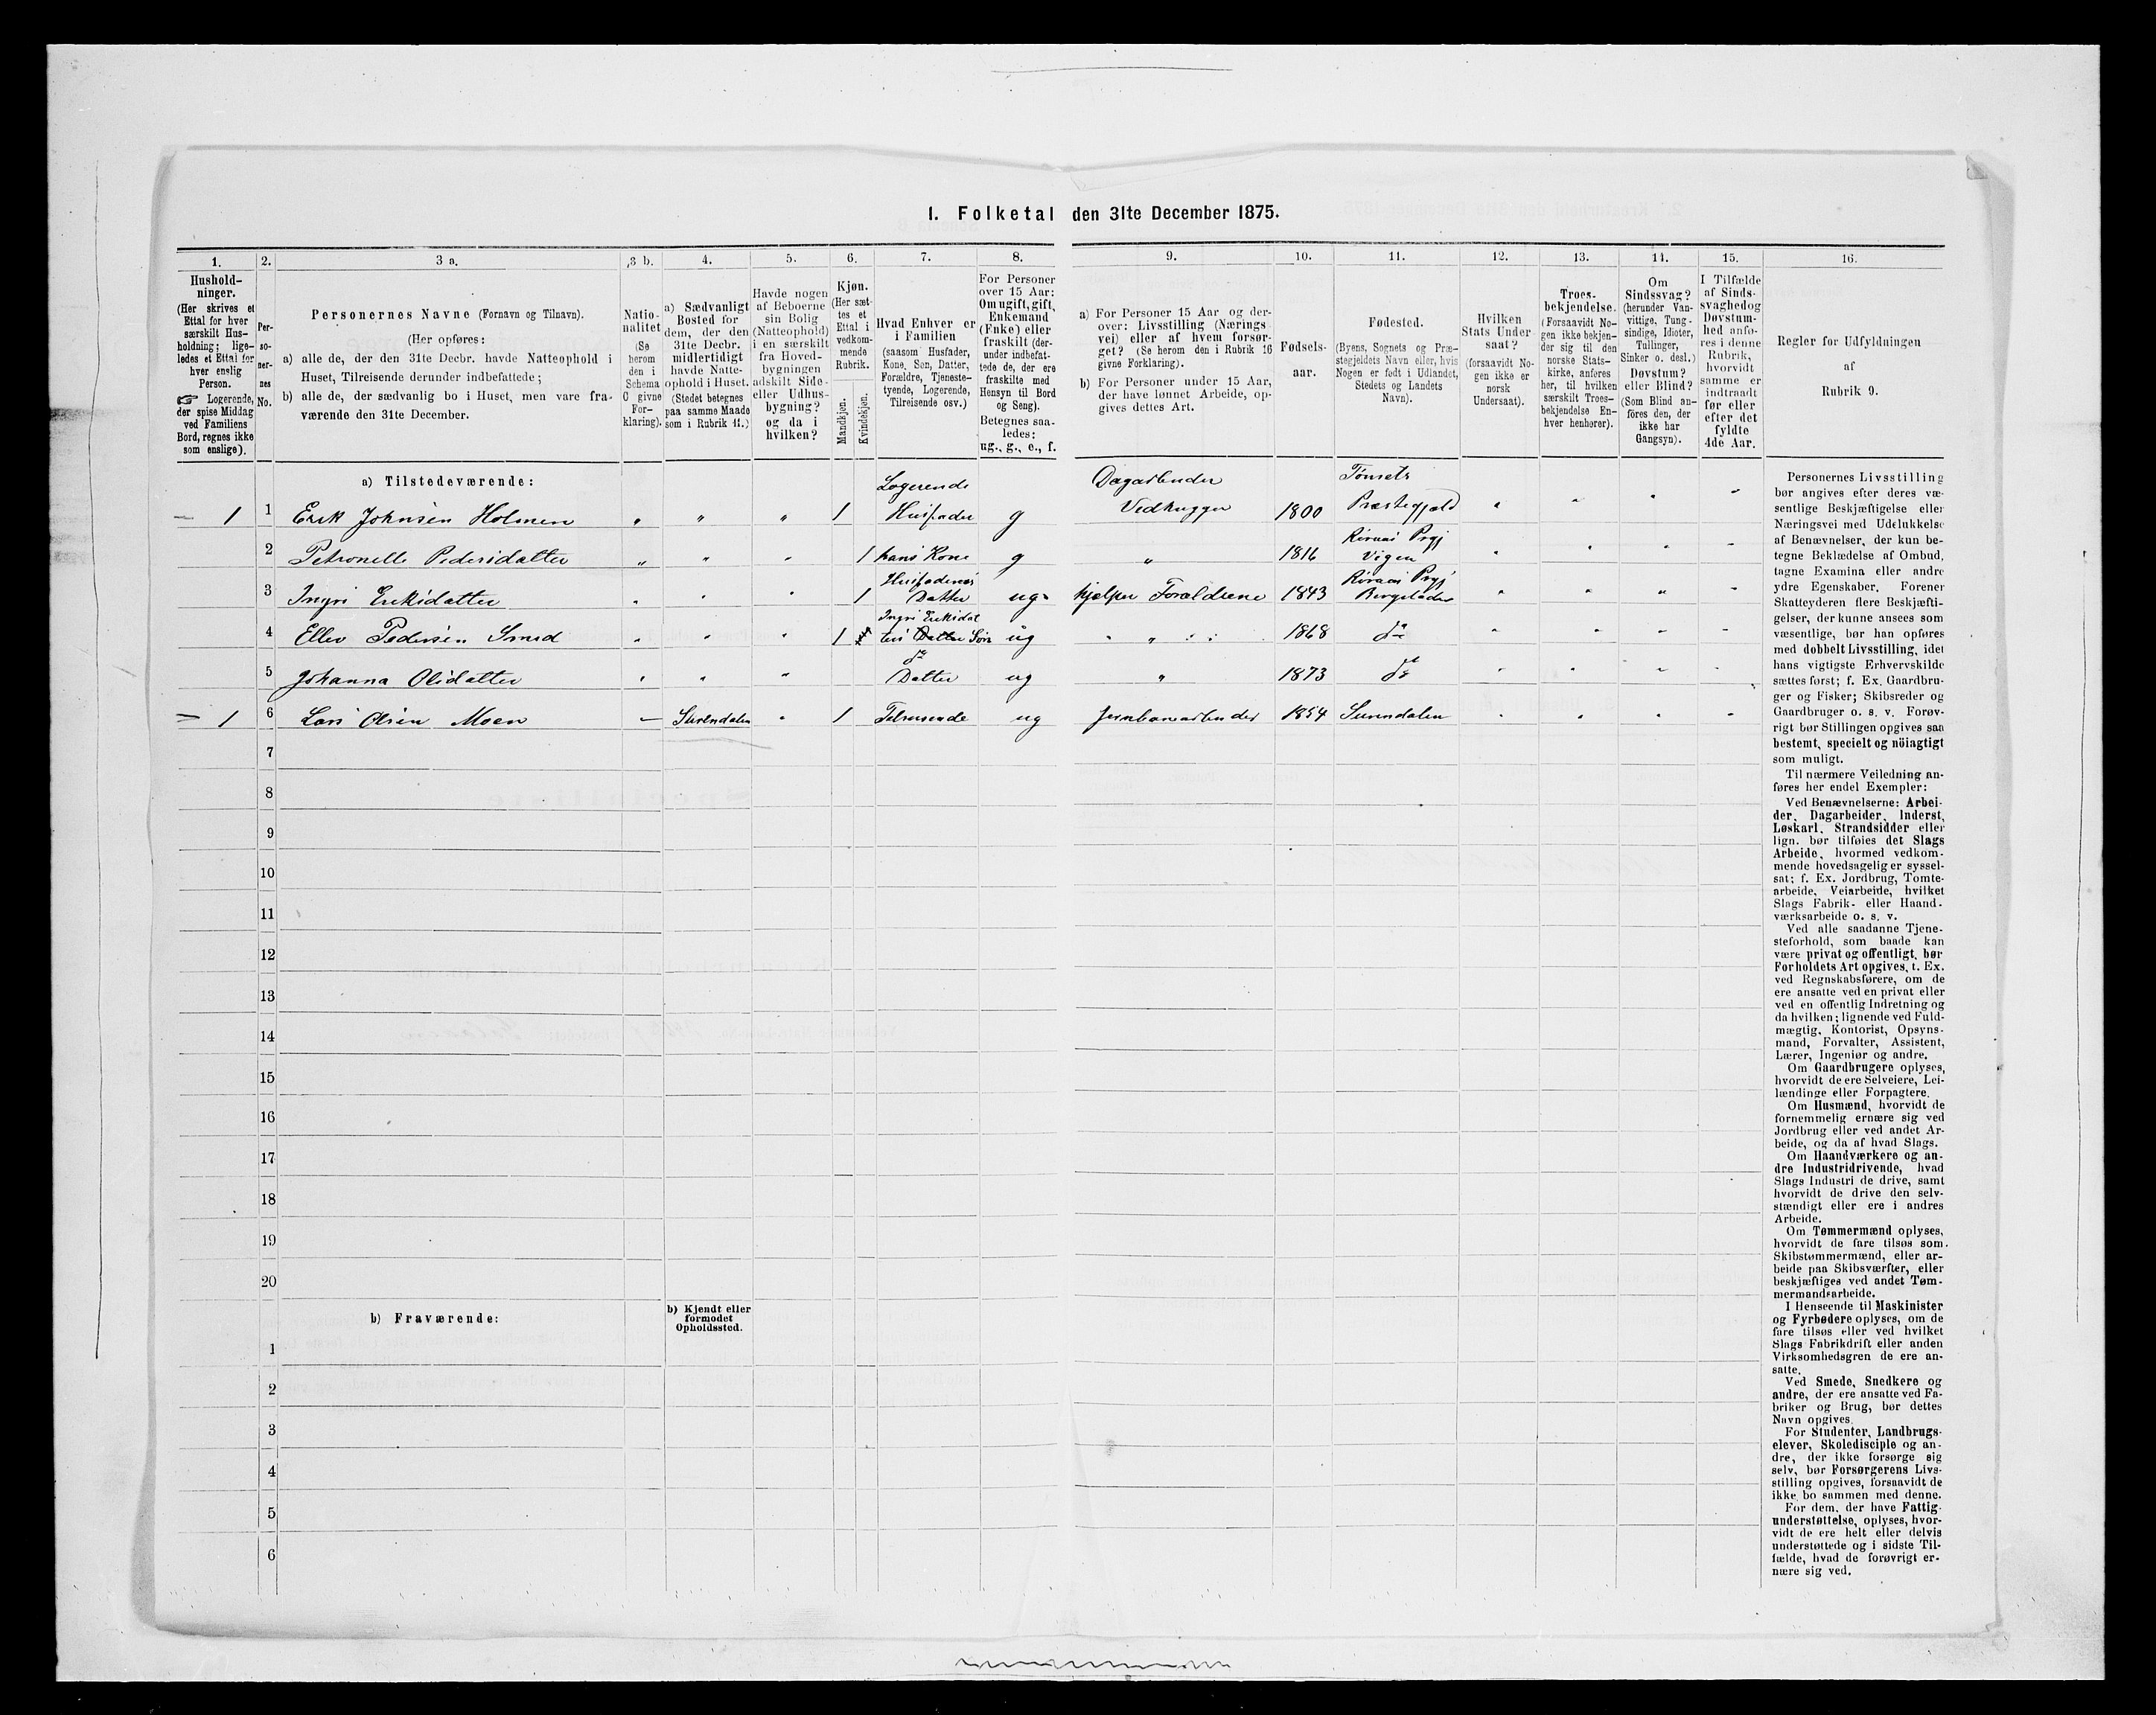 1. Folketal den 31te December 1875.
1.
2.
3 a.
3 b.
4.
5.
6.
7.
8.
9.
10.
11.
12.
13.
14.
15.
16.
Hushold-
ninger.
(Her skrives et
Ettal for hver
særskilt Hus-
holdning; lige-
ledes et Ettal for
hver enslig
Person.
☞ Logerende,
der spise Middag
ved Familiens
Bord, regnes ikke
som enslige).
Per-
so-
ner-
nes
No.
Personernes Navne (Fornavn og Tilnavn).
(Her opføres:
a) alle de, der den 31te Decbr. havde Natteophold i
Huset, Tilreisende derunder indbefattede;
b) alle de, der sædvanlig bo i Huset, men vare fra-
værende den 31te December.
Natio-
nalitet
(Se
herom
den i
Schema
C givne
For-
klaring).
a) Sædvanligt
Bosted for
dem, der den
31te Decbr.
midlertidigt
havde Natte-
ophold i Huset.
(Stedet betegnes
paa samme Maade
som i Rubrik 11.)
Havde nogen
af Beboerne
sin Bolig
(Natteophold)
i en særskilt
fra Hoved-
bygningen
adskilt Side-
eller Udhus-
bygning?
og da i
hvilken?
Kjøn.
(Her sæt-
tes et
Ettal i
vedkom-
mende
Rubrik.
Mandkjøn.
Kvindekjøn.
Hvad Enhver er
i Familien
(saasom Husfader,
Kone, Søn, Datter,
Forældre, Tjeneste-
tyende, Logerende,
Tilreisende osv.)
For Personer
over 15 Aar:
Om ugift, gift,
Enkemand
(Enke) eller
fraskilt (der-
under indbefat-
tede de, der ere
fraskilte med
Hensyn til Bord
og Seng).
Betegnes saa-
ledes:
ug., g., e., f.
a) For Personer 15 Aar og der-
over: Livsstilling (Nærings-
vei) eller af hvem forsør-
get? (Se herom den i Rubrik 16
givne Forklaring).
b) For Personer under 15 Aar,
der have lønnet Arbeide, op-
gives dettes Art.
Fødsels-
aar.
Fødested.
(Byens, Sognets og Præ-
stegjeldets Navn eller, hvis
Nogen er født i Udlandet,
Stedets og Landets
Navn).
Hvilken
Stats Under-
saat?
(forsaavidt No-
gen ikke er
norsk
Undersaat).
Troes-
bekjendelse.
(Forsaavidt No-
gen ikke bekjen-
der sig til den
norske Stats-
kirke, anføres
her, til hvilken
særskilt Troes-
bekjendelse En-
hver henhører).
Om
Sindssvag?
(herunder Van-
vittige, Tung-
sindige, Idioter,
Tullinger,
Sinker o. desl.)
Døvstum?
eller Blind?
(Som Blind an-
føres den, der
ikke har
Gangsyn).
I Tilfælde
af Sinds-
svaghed og
Døvstum-
hed anfø-
res i denne
Rubrik,
hvorvidt
samme er
indtraadt
før eller
efter det
fyldte
4de Aar.
Regler for Udfyldningen
af
Rubrik 9.
a) Tilstedeværende:
Logerende
Dagarbeider
Tønsets
1 1 Erik Johnsen Holmen " " " 1 Husfader g Vedhugger 1800 Præstegjæld
Røraas Prgj
2 Petronelle Pedersdatter " " " 1 hans Kone g " 1816 Vigen
Husfaderens
Røraas Prgj
3 Ingri Eriksdatter " " " 1 Datter ug hjelper Forældrene 1843 Bergstaden
Ingri Eriksdat
4 Ellev Pedersen Smed " " " 1 ters Datter Søn ug " 1868 do
do
5 Johanna Olsdatter " " " Datter ug " 1873 do
1 6 Lars Olsen Moen " Surendalen " 1 Tilreisende ug Jernbanearbeider 1854 Surendalen
7
8
9
10
11
12
13
14
15
16
17
18
19
20
b) Fraværende:
b) Kjendt eller
formodet
Opholdssted.
1
2
3
4
5
6
Personernes Livsstilling
bør angives efter deres væ-
sentlige Beskjæftigelse eller
Næringsvei med Udelukkelse
af Benævnelser, der kun be-
tegne Beklædelse af Ombud,
tagne Examina eller andre
ydre Egenskaber. Forener
Skatteyderen flere Beskjæfti-
gelser, der kunne ansees som
væsentlige, bør han opføres
med dobbelt Livsstilling, idet
hans vigtigste Erhvervskilde
sættes først; f. Ex. Gaardbru-
ger og Fisker; Skibsreder og
Gaardbruger o. s. v. Forøv-
rigt bør Stillingen opgives saa
bestemt, specielt og nöiagtigt
som muligt.
Til nærmere Veiledning an-
føres her endel Exempler:
Ved Benævnelserne: Arbei-
der, Dagarbeider, Inderst,
Løskarl, Strandsidder eller
lign. bør tilføies det Slags
Arbeide, hvormed vedkom-
mende hovedsagelig er syssel-
sat; f. Ex. Jordbrug, Tomte-
arbeide, Veiarbeide, hvilket
Slags Fabrik- eller Haand-
værksarbeide o. s. v.
Ved alle saadanne Tjene-
steforhold, som baade kan
være privat og offentligt, bør
Forholdets Art opgives, t. Ex.
ved Regnskabsførere, om de
ere ansatte ved en privat eller
ved en offentlig Indretning og
da hvilken; lignende ved Fuld-
mægtig, Kontorist, Opsyns-
mand, Forvalter, Assistent,
Lærer, Ingeniør og andre.
Om Gaardbrugere oplyses,
hvorvidt de ere Selveiere, Lei-
lændinge eller Forpagtere.
Om Husmænd, hvorvidt de
fornemmelig ernære sig ved
Jordbrug eller ved andet Ar-
beide, og da af hvad Slags.
Om Haandværkere og an-
dre Industridrivende, hvad
Slags Industri de drive, samt
hvorvidt de drive den selv-
stændigt eller ere i andres
Arbeide.
Om Tømmermænd oplyses,
hvorvidt de fare tilsøs som
Skibstømmermænd, eller ar-
beide paa Skibsværfter, eller
beskjæftiges ved andet Tøm-
mermandsarbeide.
I Henseende til Maskinister
og Fyrbødere oplyses, om de
fare tilsøs eller ved hvilket
Slags Fabrikdrift eller anden
Virksomhedsgren de ere an-
satte.
Ved Smede, Snedkere og
andre, der ere ansatte ved Fa-
briker og Brug, bør dettes
Navn opgives.
For Studenter, Landbrugs-
elever, Skoledisciple og an-
dre, der ikke forsørge sig
selv, bør Forsørgerens Livs-
stilling opgives, forsaavidt de
ikke bo sammen med denne.
For dem, der have Fattig-
understøttelse, oplyses, hvor-
vidt de ere helt eller delvis
understøttede og i sidste Til-
fælde, hvad de forøvrigt er-
nære sig ved.